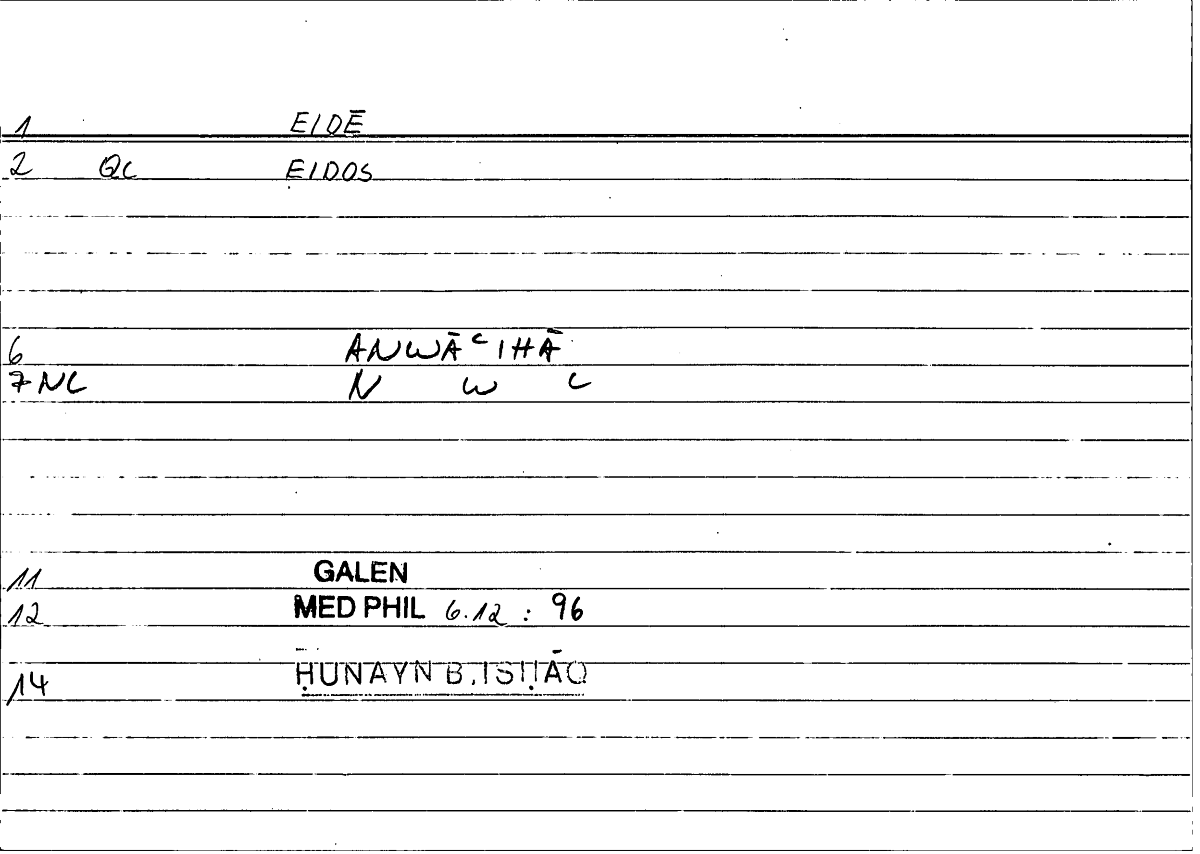 1 EIDĒ
2 QC EIDOS
6 ANWĀᶜIHĀ
7 NC N W C
11 GALEN
12 MED PHIL 6.12 : 96
14 ḤUNAYN B. ISḤĀQ